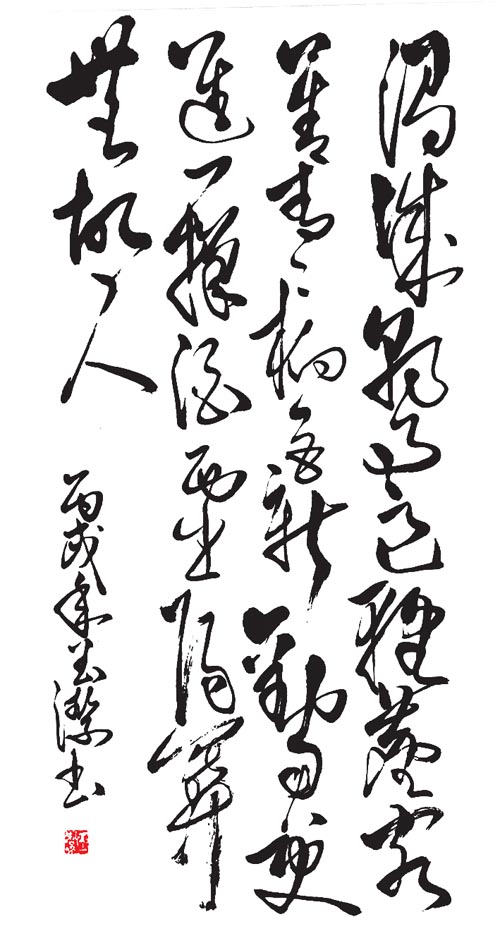 渭城朝雨浥輕塵客
舍青々柳色新勸君更
進一杯酒西出陽關
無故人
丙戌年 潔书